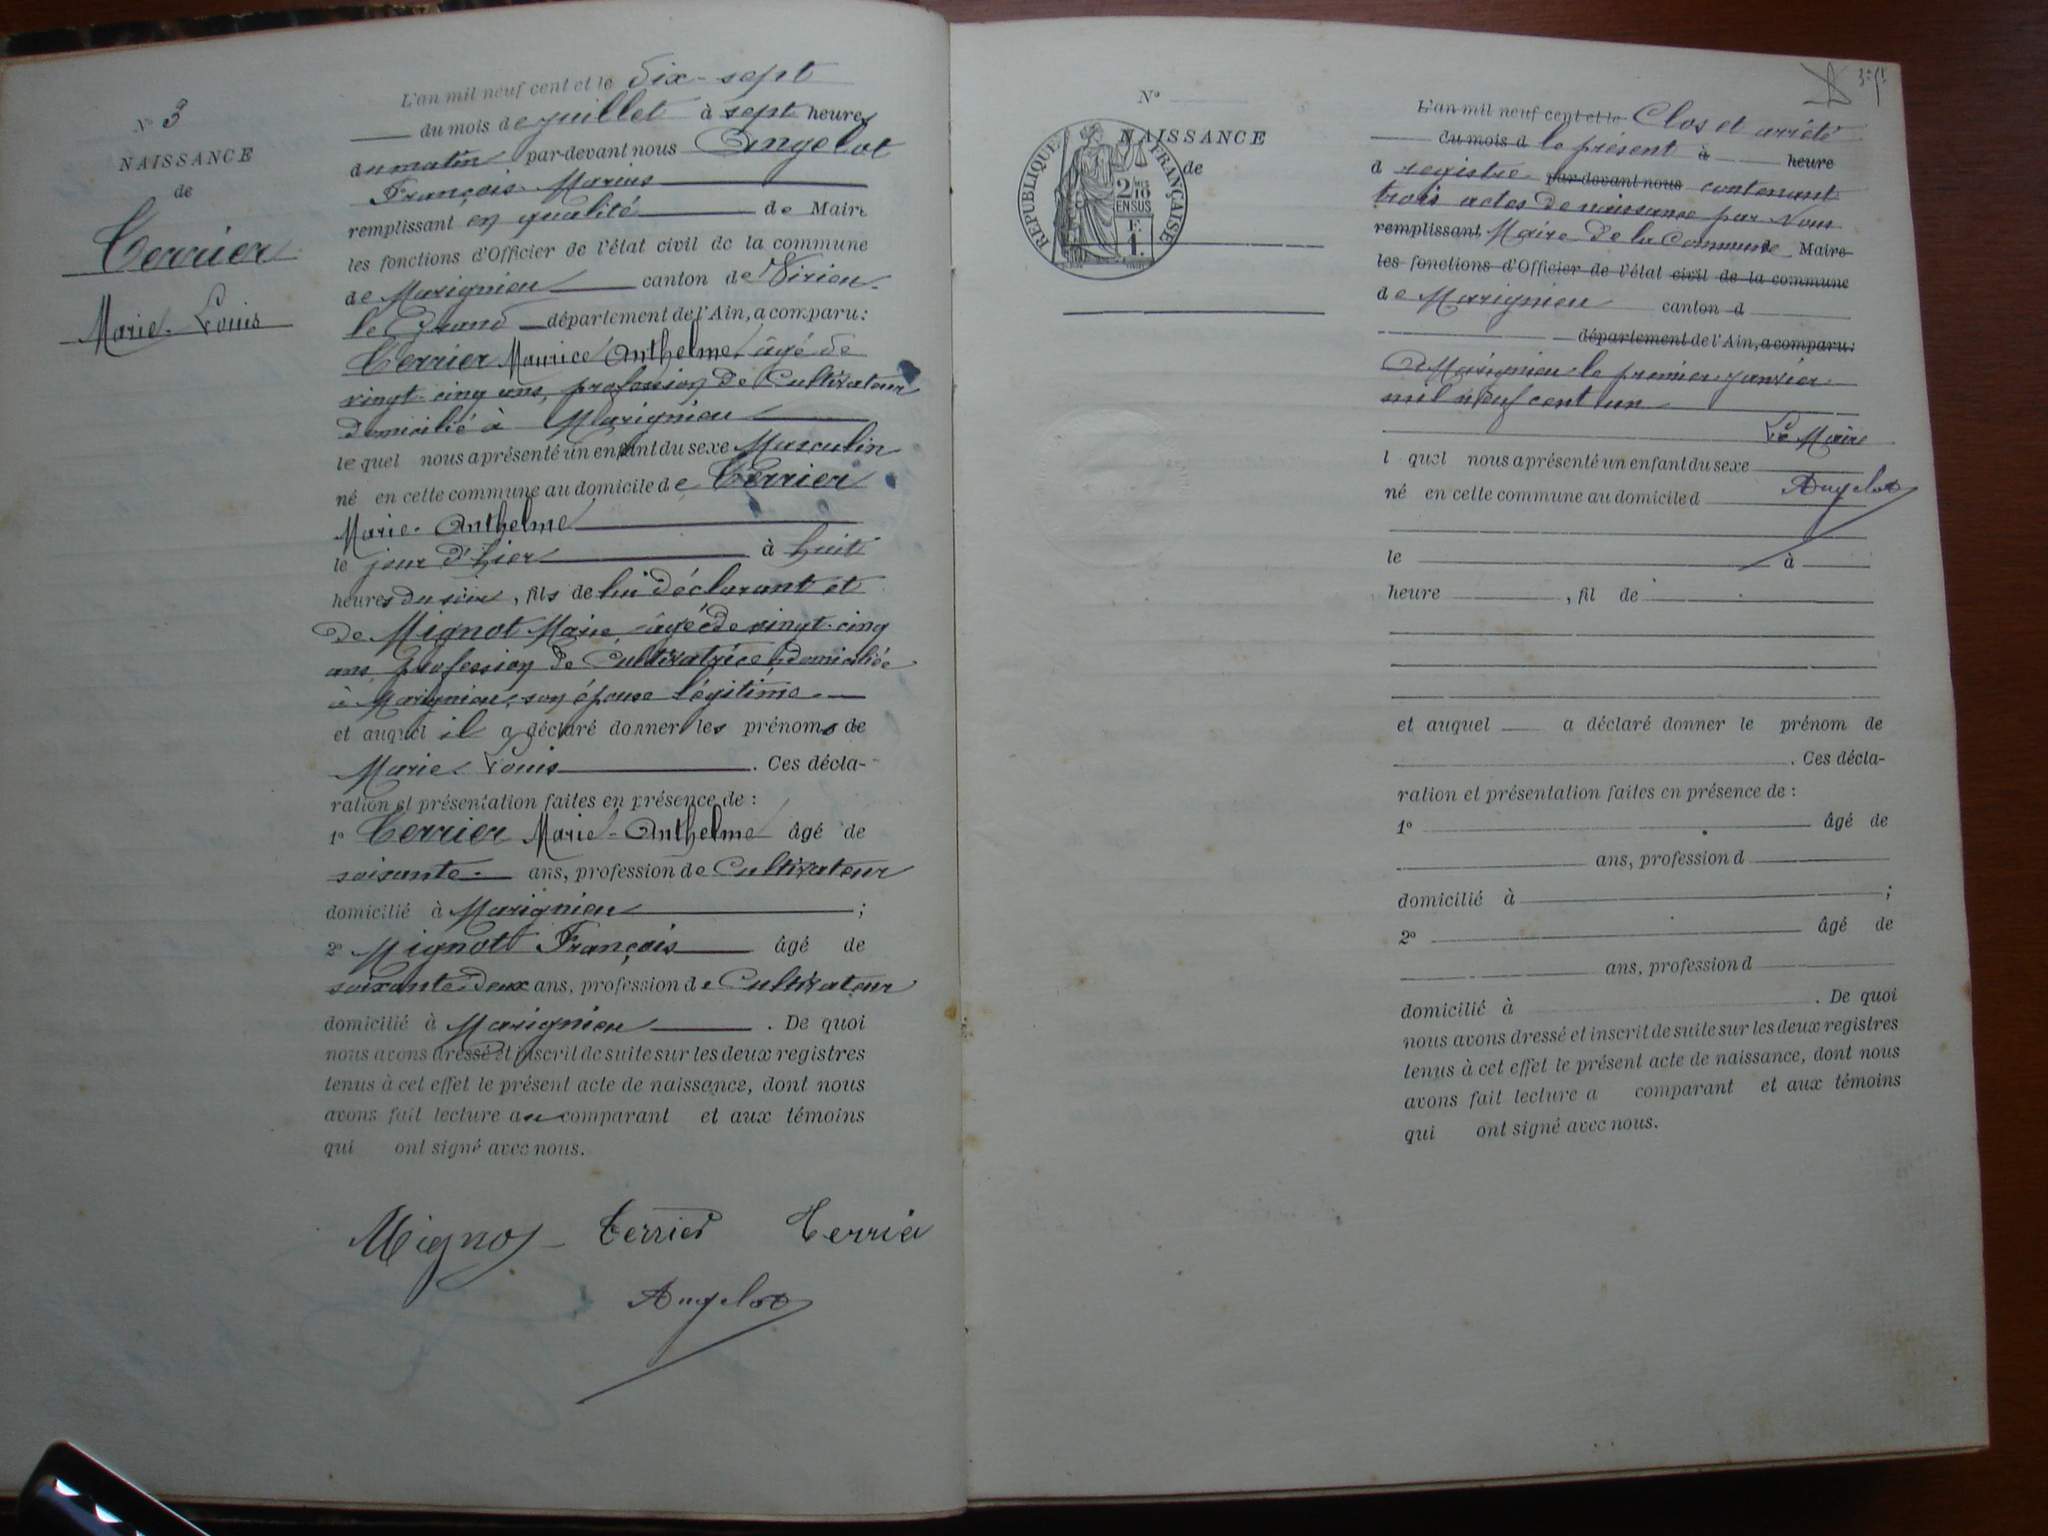 N° 3
NAISSANCE
de
Terrier
Marie-Louis
L'an mil neuf cent et le dix-sept
du mois de juillet à sept heures
du matin par-devant nous Angelot
François-Marius
remplissant en qualité de Maire
les fonctions d'Officier de l'état civil de la commune
de Marignieu canton de Virieu-
le Grand département de l'Ain, a comparu:
Terrier Maurice Anthelme, âgé de
vingt-cinq ans, profession de Cultivateur
domicilié à Marignieu
lequel nous a présenté un enfant du sexe Masculin
né en cette commune au domicile de Terrier
Marie-Anthelme
le jour d'hier à huit
heures du soir, fils de lui déclarant et
de Mignot Marie âgée de vingt-cinq
ans profession de Cultivatrice domiciliée
à Marignieu, son épouse légitime
et auquel il a déclaré donner les prénoms de
Marie-Louis. Ces décla-
ration et présentation faites en présence de :
1° Terrier Marie-Anthelme âgé de
soisante ans, profession de Cultivateur
domicilié à Marignieu ;
2° Mignot François âgé de
soixante-deux ans, profession de Cultivateur
domicilié à Marignieu. De quoi
nous avons dressé et inscrit de suite sur les deux registres
tenus à cet effet le présent acte de naissance, dont nous
avons fait lecture au comparant et aux témoins
qui ont signé avec nous.
Mignot Terrier Terrier
Angelot
N°
NAISSANCE
de
RÉPUBLIQUE FRANÇAISE
2/10
EN SUS
F.
1.
L'an mil neuf cent et le Clos et arrêté
du mois d le présent à heure
d registre par-devant nous contenant
trois actes de naissance par Nous
remplissant Maire de la Commune Maire
les fonctions d'Officier de l'état civil de la commune
de Marignieu canton d
département de l'Ain, a comparu:
A Marignieu le premier janvier
mil neuf cent un
Le Maire
l quel nous a présenté un enfant du sexe
Angelot
né en cette commune au domicile d
le à
heure , fil de
et auquel a déclaré donner le prénom de
. Ces décla-
ration et présentation faites en présence de :
1° âgé de
ans, profession d
domicilié à ;
2° âgé de
ans, profession d
domicilié à . De quoi
nous avons dressé et inscrit de suite sur les deux registres
tenus à cet effet le présent acte de naissance, dont nous
avons fait lecture a comparant et aux témoins
qui ont signé avec nous.